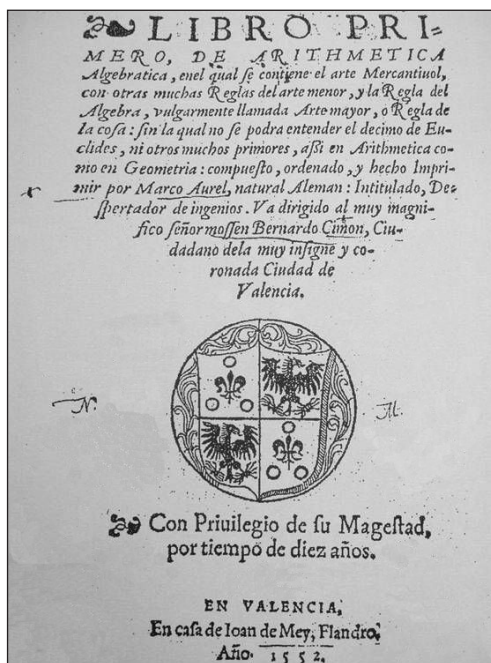 LIBRO PRI-
MERO, DE ARITHMETICA
Algebratica, enel qual se contiene el arte Mercantiuol,
con otras muchas Reglas del arte menor, y la Regla del
Algebra, vulgarmente llamada Arte mayor, o Regla de
la cosa: sin la qual no se podra entender el decimo de Eu-
clides, ni otros muchos primores, assi en Arithmetica co-
mo en Geometria: compuesto, ordenado, y hecho Impri-
mir por Marco Aurel, natural Aleman: Intitulado, Des-
pertador de ingenios. Va dirigido al muy magni-
fico señor mossen Bernardo Cimon, Ciu-
dadano dela muy insigne y co-
ronada Ciudad de
Valencia.
N. Al.
Con Priuilegio de su Magestad,
por tiempo de diez años.
EN VALENCIA,
En casa de Ioan de Mey, Flandro.
Año. 1552.